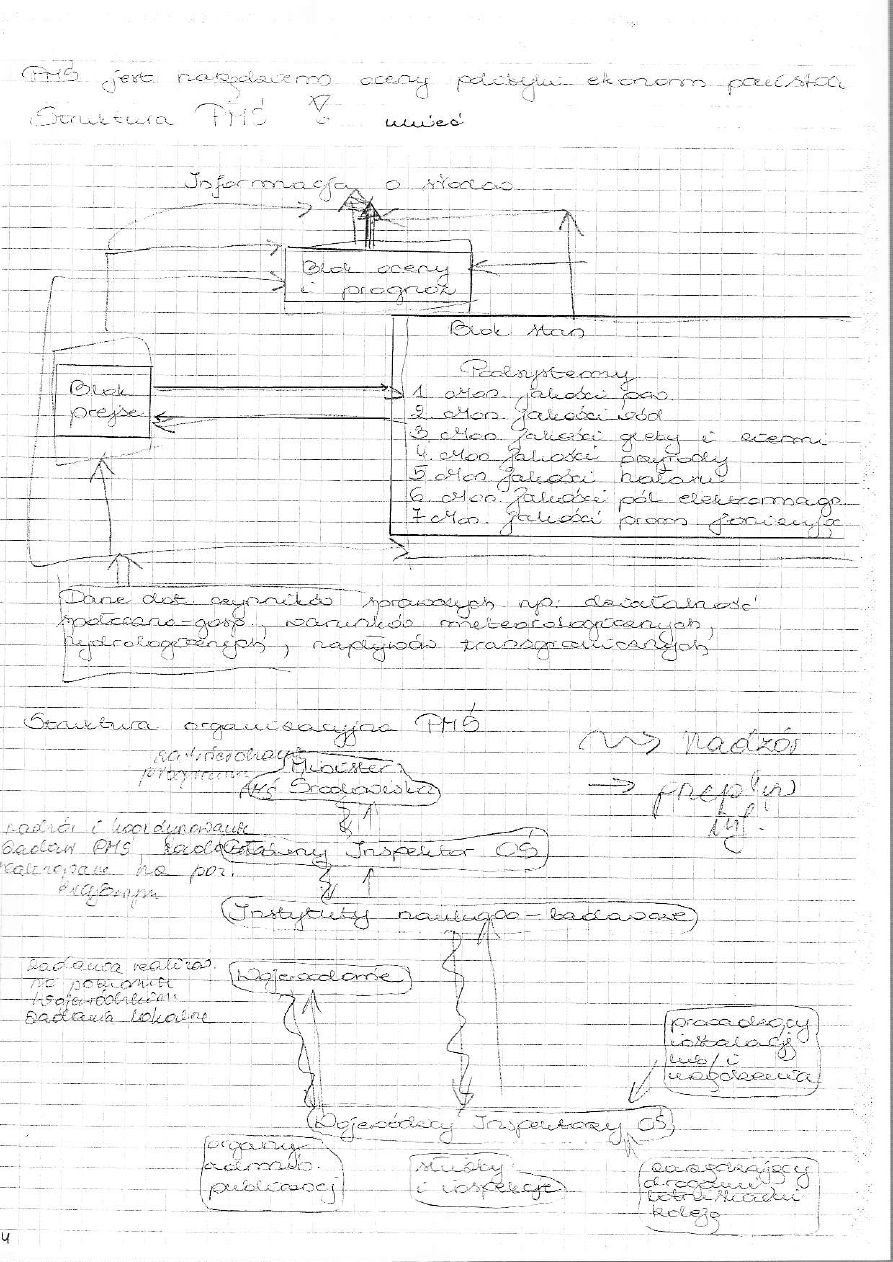 PMŚ jest narzędziem oceny polityki ekonom państwa
Struktura PMŚ ! umieć
Informacja o środow
Blok oceny
i prognoz
Blok stan
Podsystemy
1 Mon. jakości pow.
2 Mon. jakości wód
3 Mon. jakości gleby i ziemi
4 Mon. jakości przyrody
5 Mon. jakości hałasu
6 Mon. jakości pól elektromagn
7 Mon. jakości prom jonizują
Blok
presje
Dane dot czynników sprawczych np. działalność
społeczno-gosp., warunków meteorologicznych,
hydrologicznych, napływów transgranicznych
Struktura organizacyjna PMŚ
nadzór
przepływ
inf.
programu
Minister
Środowiska
nadzór i koordynowanie
badań PMŚ
na poz.
krajowym
Główny Inspektor OŚ
Instytuty naukowo-badawcze
zadania realizow.
na poziomie
wojewódzkim
zadania lokalne
Wojewodowie
prowadzący
instalacje
lub/i
urządzenia
Wojewódzcy Inspektorzy OŚ
organy
admin.
publicznej
służby
i inspekcje
zarządzający
drogami
lotniskami
koleją
4